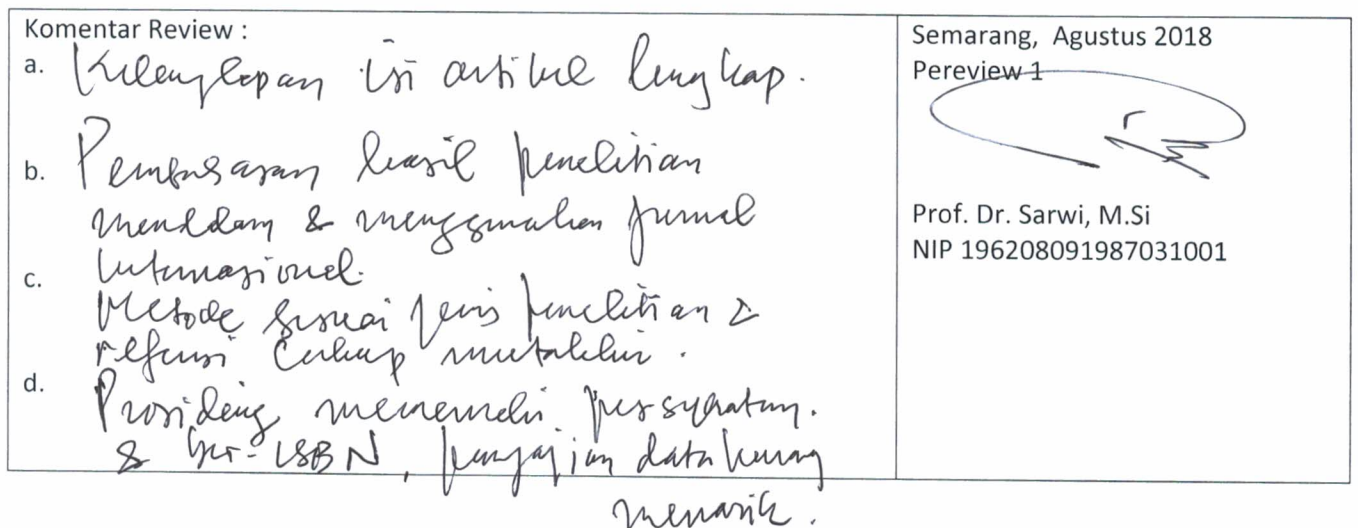 Komentar Review :
a. Kelengkapan isi artikel lengkap.
b. Pembahasan hasil penelitian
mendalam & menggunakan jurnal
Internasional.
c. Metode sesuai jenis penelitian &
referensi cukup mutakhir.
d. Prosiding memenuhi persyaratan.
& ber-ISBN, penyajian data kurang
menarik.
Semarang, Agustus 2018
Pereview 1
Prof. Dr. Sarwi, M.Si
NIP 196208091987031001